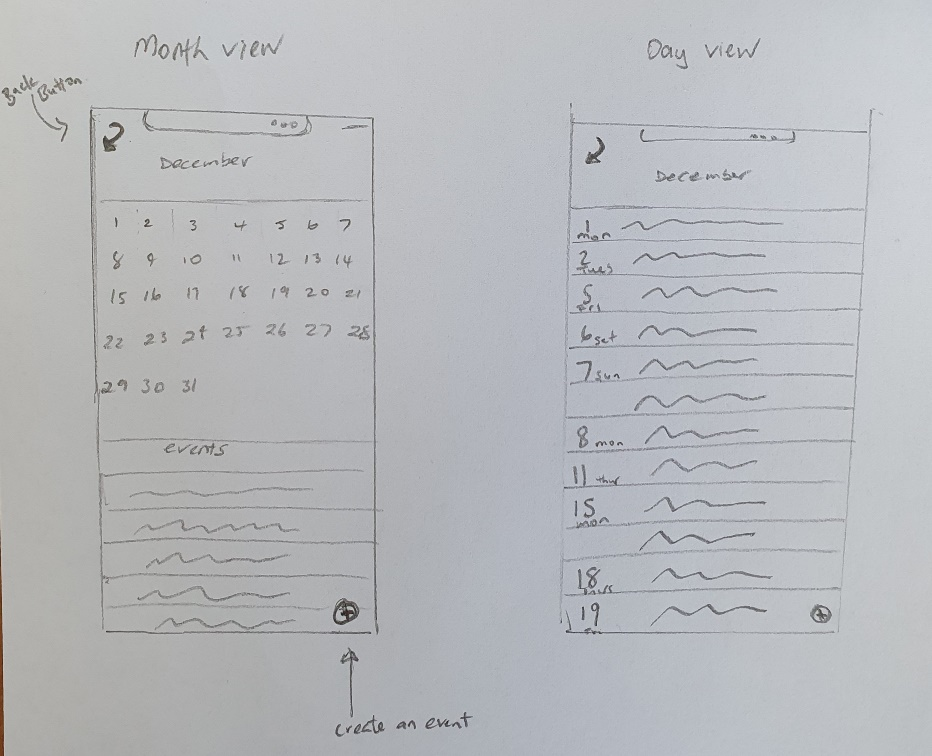 Month view
Back Button
December
1 2 3 4 5 6 7
8 9 10 11 12 13 14
15 16 17 18 19 20 21
22 23 24 25 26 27 28
29 30 31
events
create an event
Day view
December
1
mon
2
Tues
5
Fri
6 sat
7 sun
8 mon
11 thur
15
mon
18
19